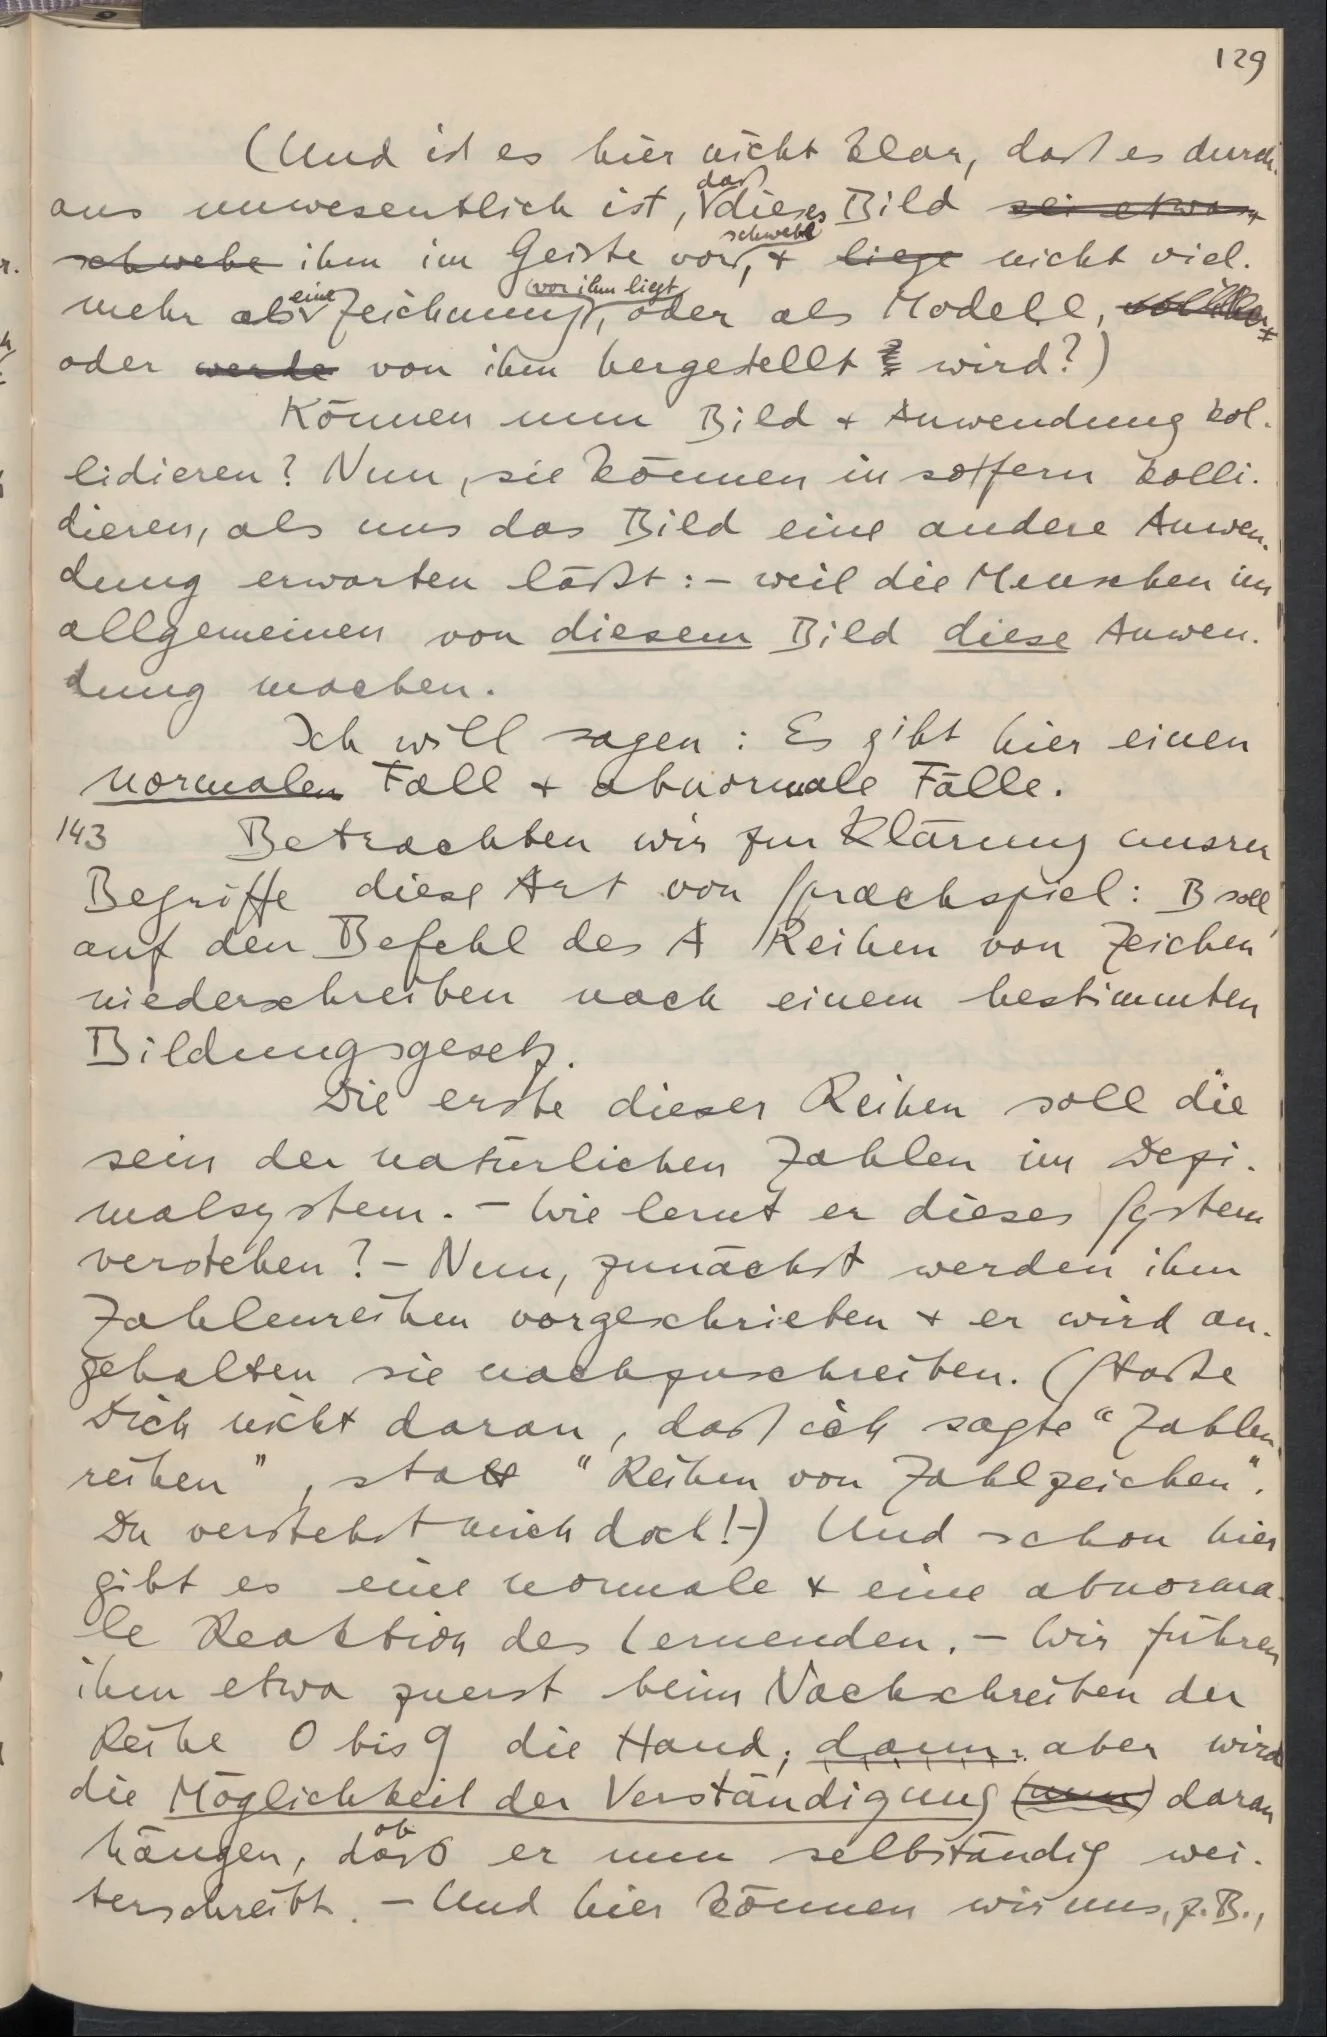 129
(Und ist es hier nicht klar, daß es durch-
aus unwesentlich ist, daß dieses Bild sei etwa
schwebe ihm im Geiste vor schwebt, + liege nicht viel-
mehr als eine Zeichnung vor ihm liegt, oder als Modell,
oder werde von ihm hergestellt wird?)
Können nun Bild + Anwendung kol-
lidieren? Nun, sie können insoffern kolli-
dieren, als uns das Bild eine andere Anwen-
dung erwarten läßt: – weil die Menschen im
allgemeinen von diesem Bild diese Anwen-
dung machen.
Ich will sagen: Es gibt hier einen
normalen Fall + abnormale Fälle.
143 Betrachten wir zur Klärung unsrer
Begriffe diese Art von Sprachspiel: B soll
auf den Befehl des A Reihen von Zeichen
niederschreiben nach einem bestimmten
Bildungsgesetz.
Die erste dieser Reihen soll die
sein der natürlichen Zahlen im Dezi-
malsystem. – Wie lernt er dieses System
verstehen? – Nun, zunächst werden ihm
Zahlenreihen vorgeschrieben + er wird an-
gehalten sie nachzuschreiben. (Stoße
Dich nicht daran, daß ich sagte “Zahlen-
reihen”, statt “Reihen von Zahlzeichen”.
Du verstehst mich doch! –) Und schon hier
gibt es eine normale + eine abnorma-
le Reaktion des Lernenden. – Wir führen
ihm etwa zuerst beim Nachschreiben der
Reihe 0 bis 9 die Hand; dann aber wird
die Möglichkeit der Verständigung (nun) daran
hängen, daß ob er nun selbständig wei-
terschreibt. – Und hier können wir uns, z.B.,